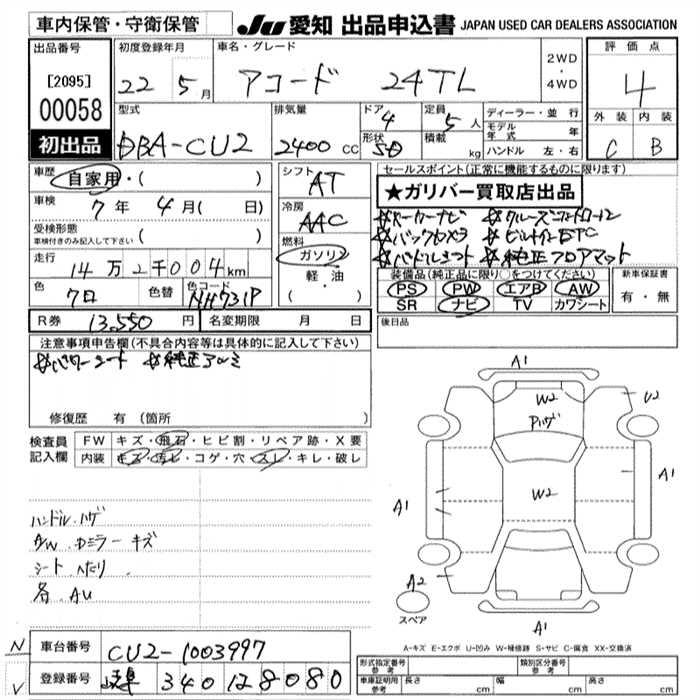 車内保管・守衛保管
JU 愛知 出品申込書 JAPAN USED CAR DEALERS ASSOCIATION
出品番号
[2095]
00058
初出品
初度登録年月
22 5月
車名・グレード
アコード 24TL
2WD
・
4WD
評価点
4
外装 内装
C B
型式
DBA-CU2
排気量
2400 CC
ドア
4
形状
SD
定員
5人
積載
kg
ディーラー・並行
モデル
年式 年
ハンドル 左・右
車歴
自家用・( )
車検
7年 4月( 日)
受検形態
車検付きのみ記入して下さい( )
走行
14万2千004km
色
クロ
色替
色コード
NH731P
シフト
AT
冷房
AAC
燃料
ガソリン
軽・油
( )
セールスポイント(正常に機能するものに限ります)
★ガリバー買取店出品
メーカーナビ クルーズコントロール
バックカメラ ビルトインETC
パドルシフト 純正フロアマット
装備品(純正品に限り○をつけてください)
PS PW エアB AW
SR ナビ TV カワシート
新車保証書
有・無
R券 13,550円
名変期限 月 日
後日品
注意事項申告欄(不具合内容等は具体的に記入して下さい)
パワーシート 純正アルミ
修復歴 有(箇所
検査員
記入欄
FW キズ・飛石・ヒビ割・リペア跡・X要
内装 キズ・汚レ・コゲ・穴・スレ・キレ・破レ
ハンドル ハゲ
A/W ドミラー キズ
シート ヘタリ
各 AU
A1
W2
Pハゲ
U2
A1
W2
A1
A2
スペア
A1
A-キズ E-エクボ U-凹み W-補修跡 S-サビ C-腐食 XX-交換済
N
V
車台番号 CU2-1003997
登録番号 岐阜 340 12 8080
形式指定番号
参考
類別区分番号
参考
車庫証明用
参考
長さ cm
幅 cm
高さ cm